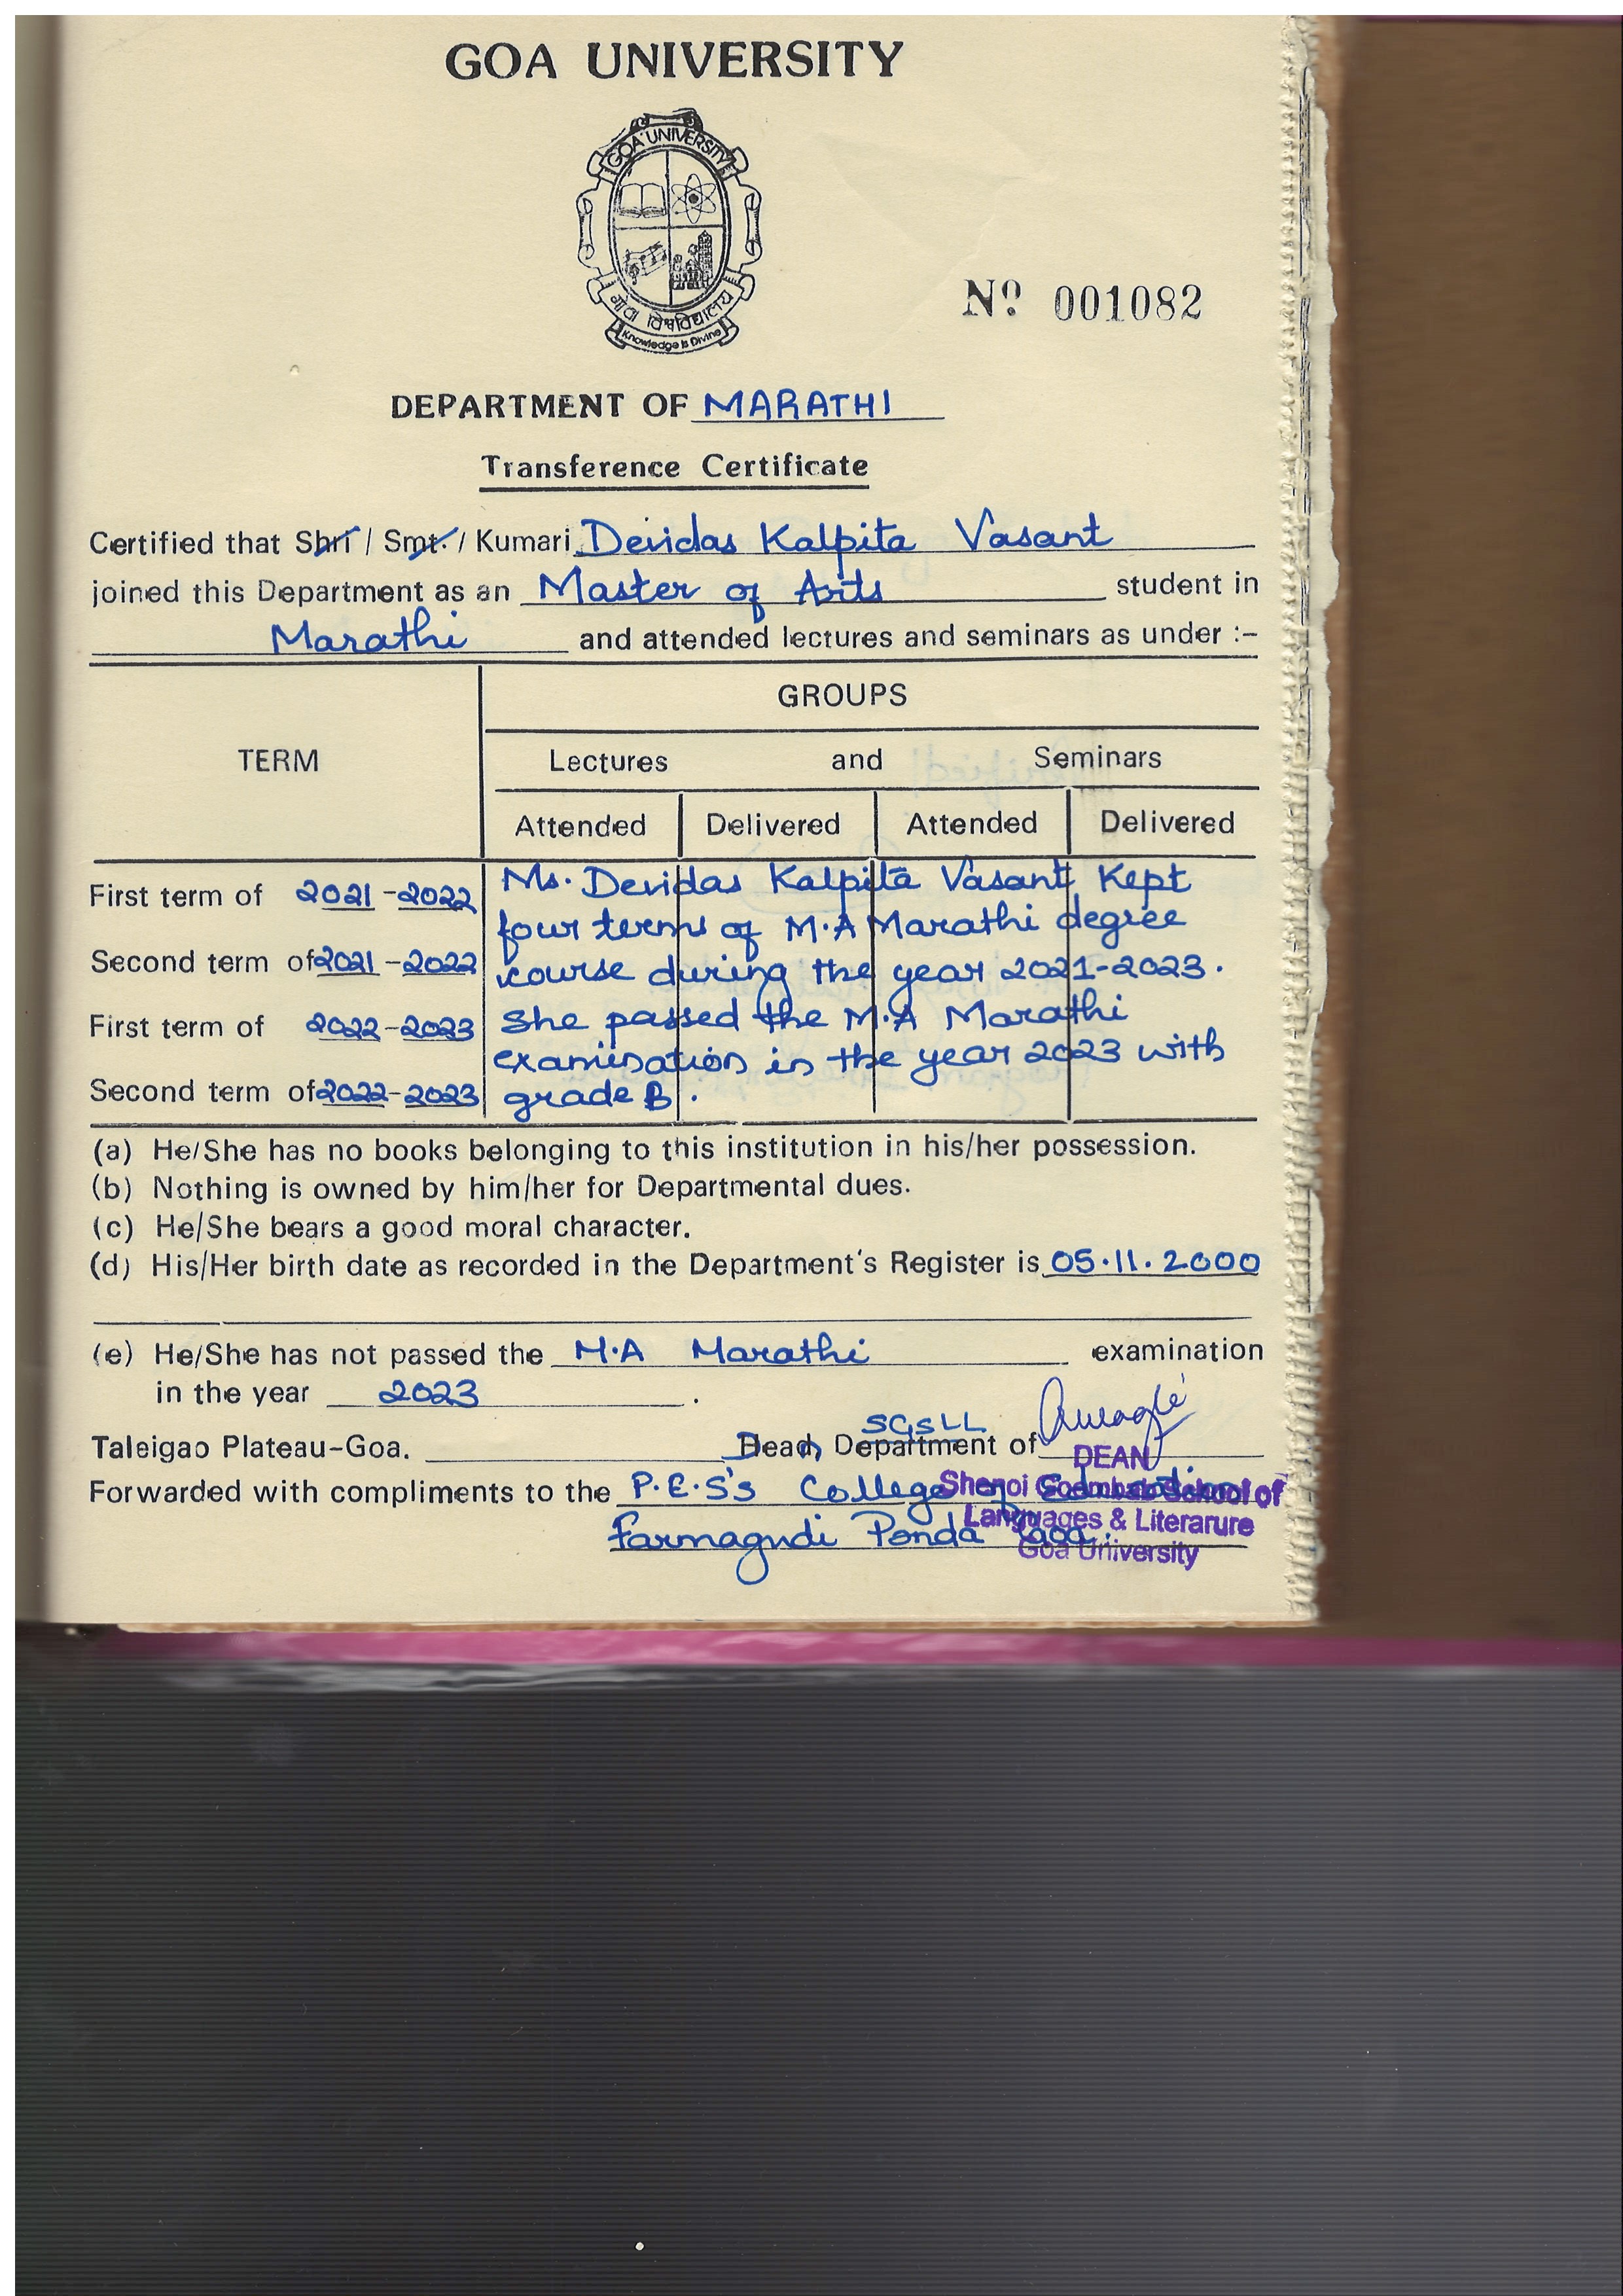 GOA UNIVERSITY
GOA UNIVERSITY
गोंवा विश्वविद्यालय
Knowledge is Divine
Nº 001082
DEPARTMENT OF MARATHI
Transference Certificate
Certified that Shri / Smt. / Kumari Devidas Kalpita Vasant
joined this Department as an Master of Arts student in
Marathi and attended lectures and seminars as under :-
GROUPS
TERM Lectures and Seminars
Attended Delivered Attended Delivered
First term of 2021-2022
Second term of 2021-2022
First term of 2022-2023
Second term of 2022-2023
Ms. Devidas Kalpita Vasant Kept
four terms of M.A Marathi degree
course during the year 2021-2023.
She passed the M.A Marathi
examination in the year 2023 with
grade B.
(a) He/She has no books belonging to this institution in his/her possession.
(b) Nothing is owned by him/her for Departmental dues.
(c) He/She bears a good moral character.
(d) His/Her birth date as recorded in the Department's Register is 05.11.2000
(e) He/She has not passed the M.A Marathi examination
in the year 2023.
SGSLL
Taleigao Plateau-Goa. Dean, Department of
DEAN
Shenoi Goembab School of
Languages & Literarure
Goa University
Forwarded with compliments to the P.E.S's College of Education
Farmagudi Ponda Goa.